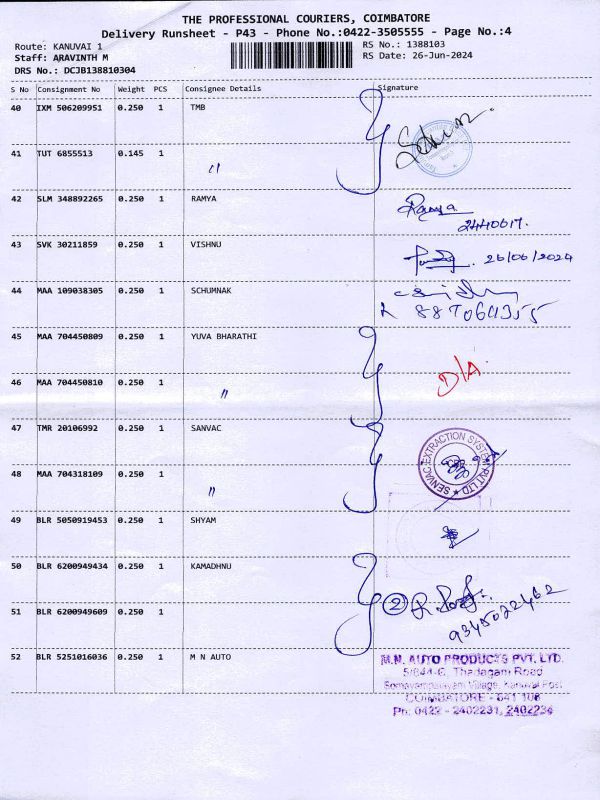 THE PROFESSIONAL COURIERS, COIMBATORE
Delivery Runsheet - P43 - Phone No.:0422-3505555 - Page No.:4
Route: KANUVAI 1
RS No.: 1388103
Staff: ARAVINTH M
RS Date: 26-Jun-2024
DRS No.: DCJB138810304
S No Consignment No Weight PCS Consignee Details Signature
40 IXM 506209951 0.250 1 TMB
41 TUT 6855513 0.145 1 〃
42 SLM 348892265 0.250 1 RAMYA Ramya
2440617.
43 SVK 30211859 0.250 1 VISHNU 26/06/2024
44 MAA 109038305 0.250 1 SCHUMNAK
45 MAA 704450809 0.250 1 YUVA BHARATHI
D/A.
46 MAA 704450810 0.250 1 〃
47 TMR 20106992 0.250 1 SANVAC
SENVAC EXTRACTION SYSTEM PVT LTD
48 MAA 704318109 0.250 1 〃
49 BLR 5050919453 0.250 1 SHYAM
50 BLR 6200949434 0.250 1 KAMADHNU
2
51 BLR 6200949609 0.250 1
9345022462
52 BLR 5251016036 0.250 1 M N AUTO
M.N. AUTO PRODUCTS PVT. LTD.
5/644-C, Thadagam Road
Somayampalayam Village, Kanuvai Post
COIMBATORE - 641 108
Ph: 0422 - 2402231, 2402234